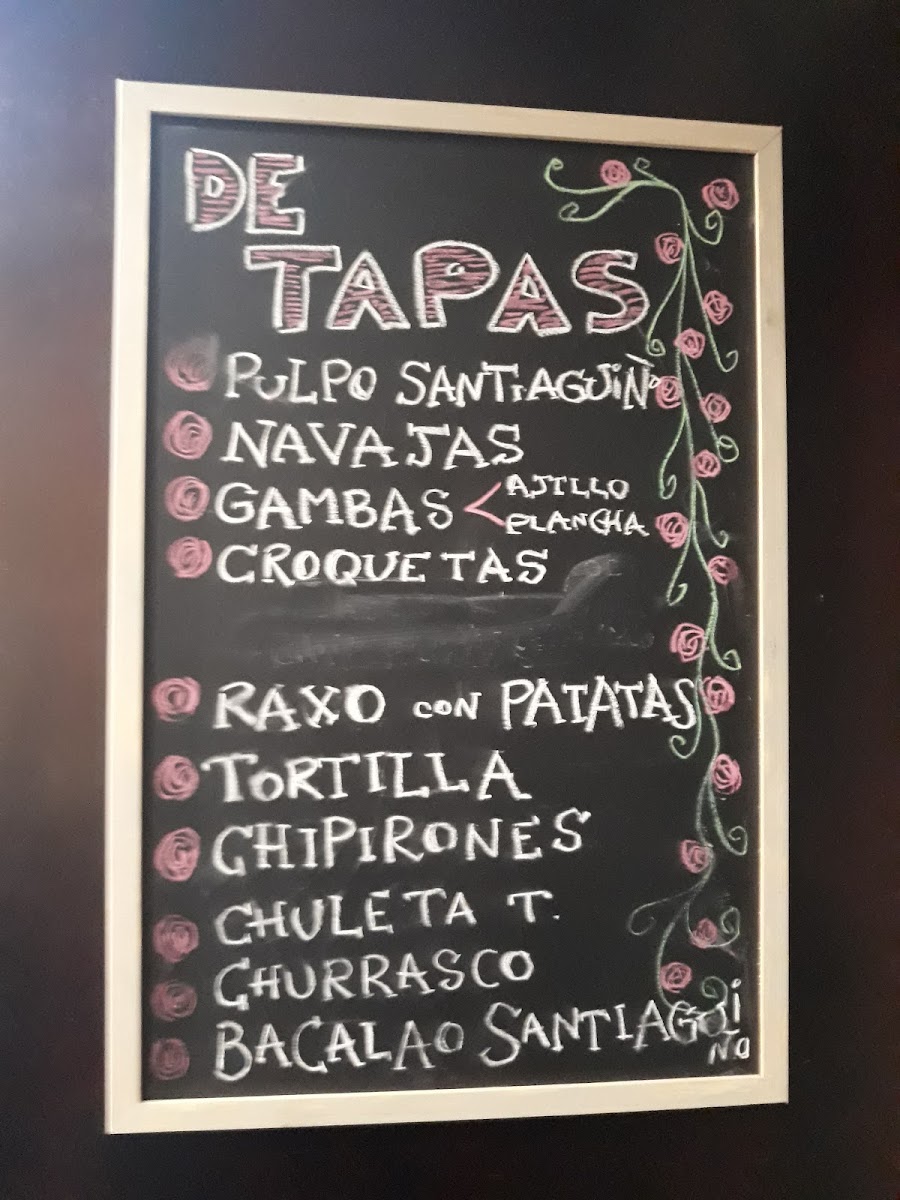 DE
TAPAS
PULPO SANTIAGUIÑO
NAVAJAS
GAMBAS < AJILLO
PLANCHA
CROQUETAS
RAXO CON PATATAS
TORTILLA
CHIPIRONES
CHULETA T.
CHURRASCO
BACALAO SANTIAGUI
ÑO